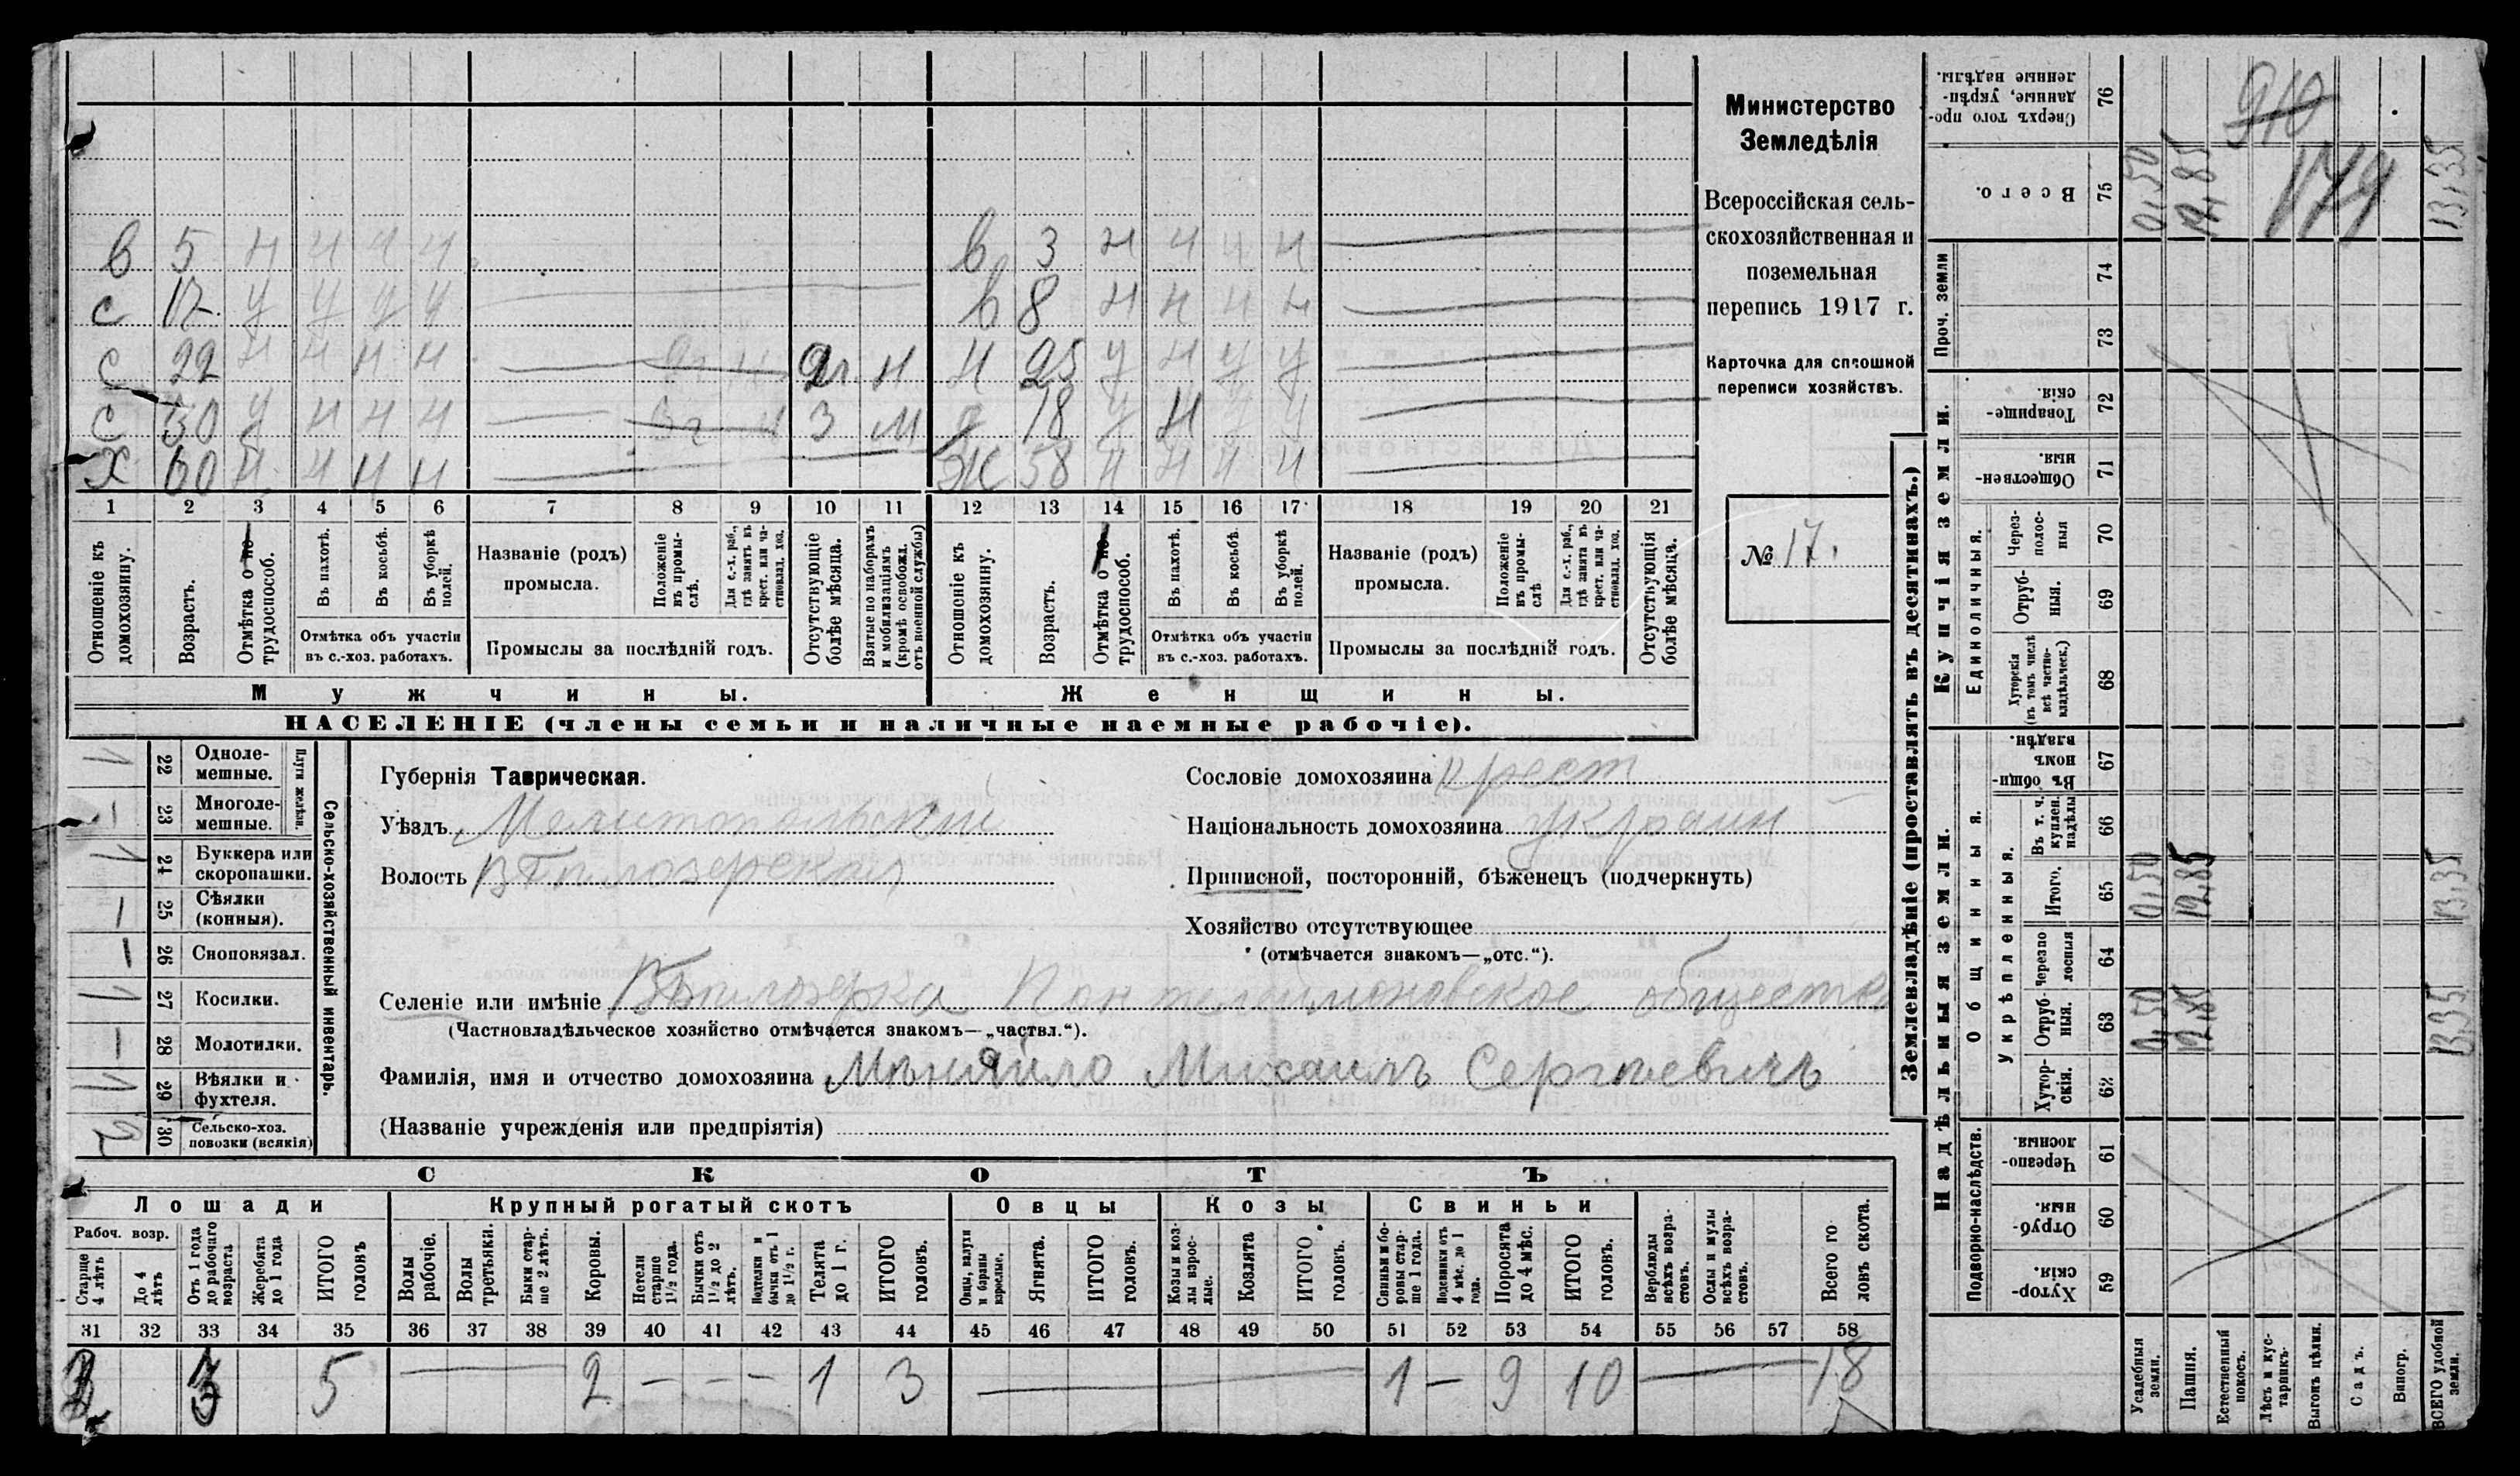 в 5 н н н н в 3 н н н н
с 17 у у у у в 8 н н н н
с 22 н н н н 2 г. н н 25 у н у у
с 30 у н н н 3 м 18 у н у у
х 60 н н н н ж 58 н н н н
1 2 3 4 5 6 7 8 9 10 11 12 13 14 15 16 17 18 19 20 21
Отношеніе къ домохозяину.
Возрастъ.
Отмѣтка о не-трудоспособ.
Въ пахотѣ.
Въ косьбѣ.
Въ уборкѣ полей.
Отмѣтка объ участіи въ с.-хоз. работахъ.
Названіе (родъ) промысла.
Положеніе въ промы-слѣ.
Для с.-х. раб., гдѣ занятъ въ крест. или ча-стновлад. хоз.
Промыслы за послѣдній годъ.
Отсутствующіе болѣе мѣсяца.
Взятые по наборамъ и мобилизаціямъ (кромѣ освобожд. отъ военной службы)
Отношеніе къ домохозяину.
Возрастъ.
Отмѣтка о не-трудоспособ.
Въ пахотѣ.
Въ косьбѣ.
Въ уборкѣ полей.
Отмѣтка объ участіи въ с.-хоз. работахъ.
Названіе (родъ) промысла.
Положеніе въ промы-слѣ
Для с.-х. раб., гдѣ занята въ крест. или ча-стновлад. хоз.
Промыслы за послѣдній годъ.
Отсутствующія болѣе мѣсяца.
Мужчины. Женщины.
НАСЕЛЕНІЕ (члены семьи и наличные наемные рабочіе).
Министерство
Земледѣлія
Всероссійская сель-
скохозяйственная и
поземельная
перепись 1917 г.
Карточка для сплошной
переписи хозяйствъ.
№ 17.
Сельско-хозяйственный инвентарь.
Плуги желѣзн.
22 Одноле-мешные.
23 Многоле-мешные.
24 Буккера или скоропашки.
25 Сѣялки (конныя).
26 Сноповязал.
27 Косилки.
28 Молотилки.
29 Вѣялки и фухтеля.
30 Сельско-хоз. повозки (всякія)
Губернія Таврическая.
Уѣздъ Мелитопольский
Волость В Бѣлозерская
Сословіе домохозяина крест
Національность домохозяина украин
Приписной, посторонній, бѣженецъ (подчеркнуть)
Хозяйство отсутствующее
(отмѣчается знакомъ—„отс.“).
Селеніе или имѣніе В Бѣлозерка Пантелеимоновское общество
(Частновладѣльческое хозяйство отмѣчается знакомъ—„частвл.“).
Фамилія, имя и отчество домохозяина Мѣняйло Михаилъ Сергѣевичъ
(Названіе учрежденія или предпріятія)
СКОТЪ
Лошади Крупный рогатый скотъ Овцы Козы Свиньи
Рабоч. возр.
Старше 4 лѣтъ
До 4 лѣтъ
Отъ 1 года до рабочаго возраста
Жеребята до 1 года
ИТОГО головъ
Волы рабочіе.
Волы третьяки.
Быки стар-ше 2 лѣтъ.
Коровы.
Нетели старше 1½ года.
Бычки отъ 1½ до 2 лѣтъ.
Подтелки и бычки отъ 1 до 1½ г.
Телята до 1 г.
ИТОГО головъ.
Овцы, валухи и бараны взрослые.
Ягнята.
ИТОГО головъ.
Козы и коз-лы взрос-лые.
Козлята
ИТОГО головъ.
Свиньи и бо-ровы стар-ше 1 года.
Подсвинки отъ 4 мѣс. до 1 года.
Поросята до 4 мѣс.
ИТОГО головъ.
Верблюды всѣхъ возра-стовъ.
Ослы и мулы всѣхъ возра-стовъ.
Всего го-ловъ скота.
31 32 33 34 35 36 37 38 39 40 41 42 43 44 45 46 47 48 49 50 51 52 53 54 55 56 57 58
3 5 — 2 — — — 1 3 — 1 — 9 10 — 18
Землевладѣніе (проставлять въ десятинахъ.)
Надѣльныя земли. Купчія земли.
Подворно-наслѣдств.
Общинныя.
Укрѣпленныя.
Единоличныя.
Проч. земли
59 Хутор-скія.
60 Отруб-ныя.
61 Черезпо-лосныя.
62 Хутор-скія.
63 Отруб-ныя. 0,50 12,85 13,35
64 Черезпо лосныя
65 Итого. 0,50 12,85 13,35
66 Въ т. ч. куплен. надѣлы
67 Въ общи-номъ владѣн.
68 Хуторскія (въ томъ числѣ всѣ частно-владѣльческ.)
69 Отруб-ныя.
70 Через-полос-ныя
71 Обществен-ныя.
72 Товарище-скія.
73
74
75 Всего. 0,50 12,85 13,35
76 Сверхъ того про-данные, укрѣп-ленные надѣлы.
910
179
Усадебныя земли.
Пашня.
Естественный покосъ.
Лѣсъ и кус-тарникъ.
Выгонъ цѣлин.
Садъ.
Виногр.
ВСЕГО удобной земли.